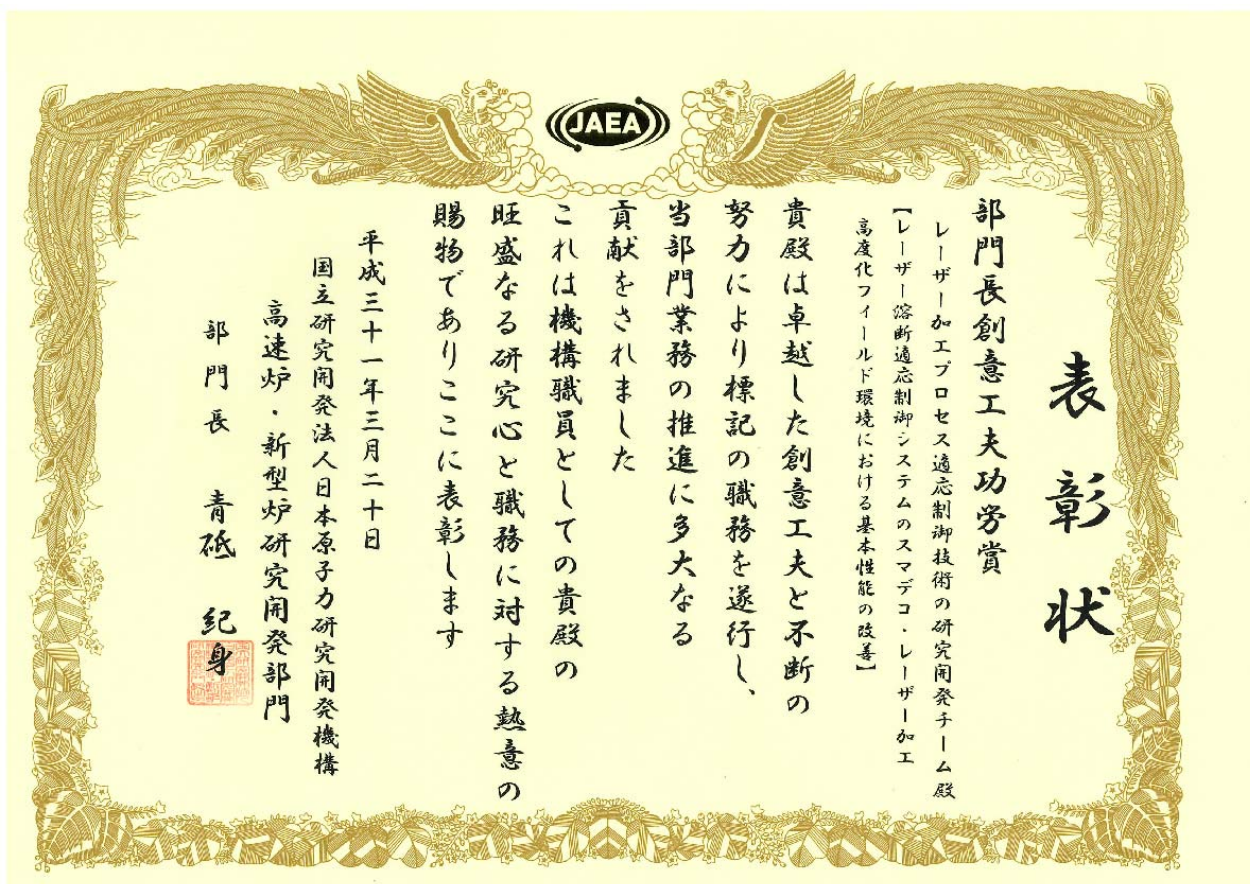 JAEA
表彰状
部門長創意工夫功労賞
レーザー加工プロセス適応制御技術の研究開発チーム殿
【レーザー溶断適応制御システムのスマデコ・レーザー加工
高度化フィールド環境における基本性能の改善】
貴殿は卓越した創意工夫と不断の
努力により標記の職務を遂行し、
当部門業務の推進に多大なる
貢献をされました
これは機構職員としての貴殿の
旺盛なる研究心と職務に対する熱意の
賜物でありここに表彰します
平成三十一年三月二十日
国立研究開発法人日本原子力研究開発機構
高速炉・新型炉研究開発部門
部門長 青砥 紀身